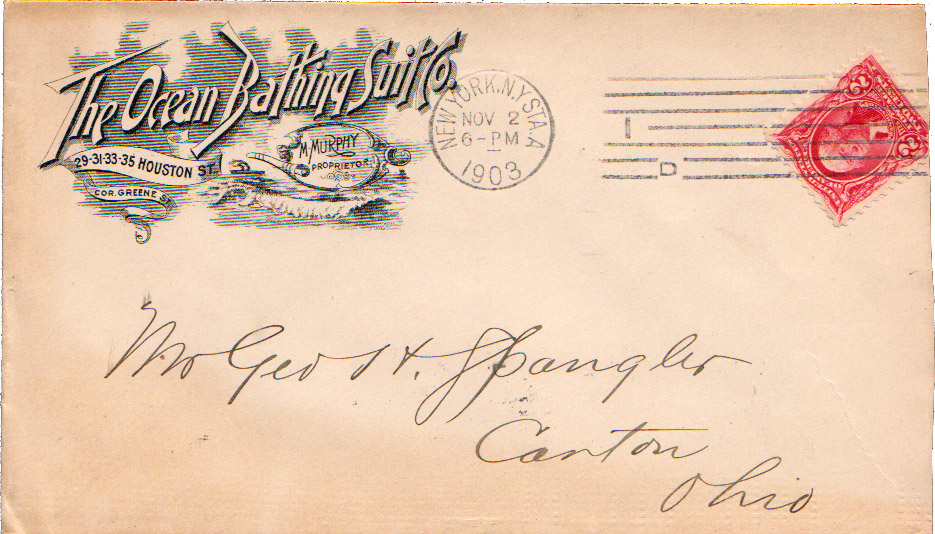 The Ocean Bathing Suit Co.
29-31-33-35 HOUSTON ST.
COR. GREENE ST.
M. MURPHY
PROPRIETOR.
NEW YORK, N.Y. STA. A
NOV 2
6-PM
1903
I
D
2
2
Mr Geo H. Spangler
Canton
Ohio